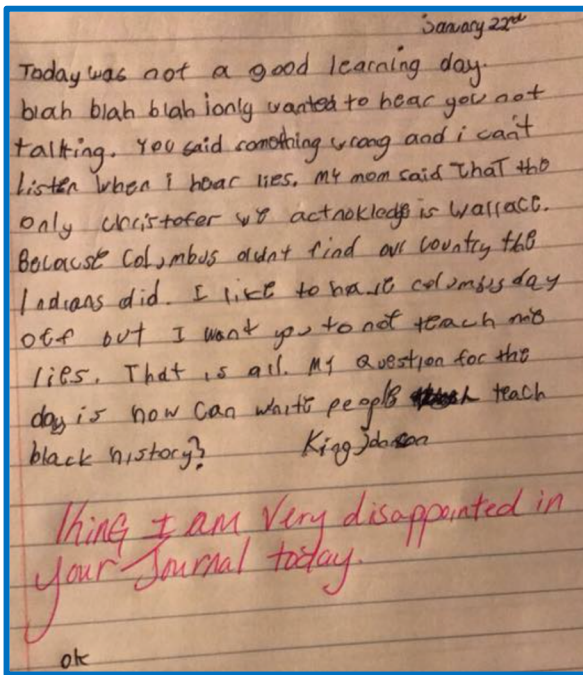 January 22nd
Today was not a good learning day.
blah blah blah ionly wanted to hear you not
talking. You said something wrong and i can't
listen when i hear lies. My mom said that the
only christofer we acknokledge is Wallace.
Because Columbus didnt find our country the
Indians did. I like to have columbus day
off but I want you to not teach me
lies. That is all. My question for the
day is how can white people teach
black history?
King Johnson
King I am very disappointed in
your Journal today.
ok